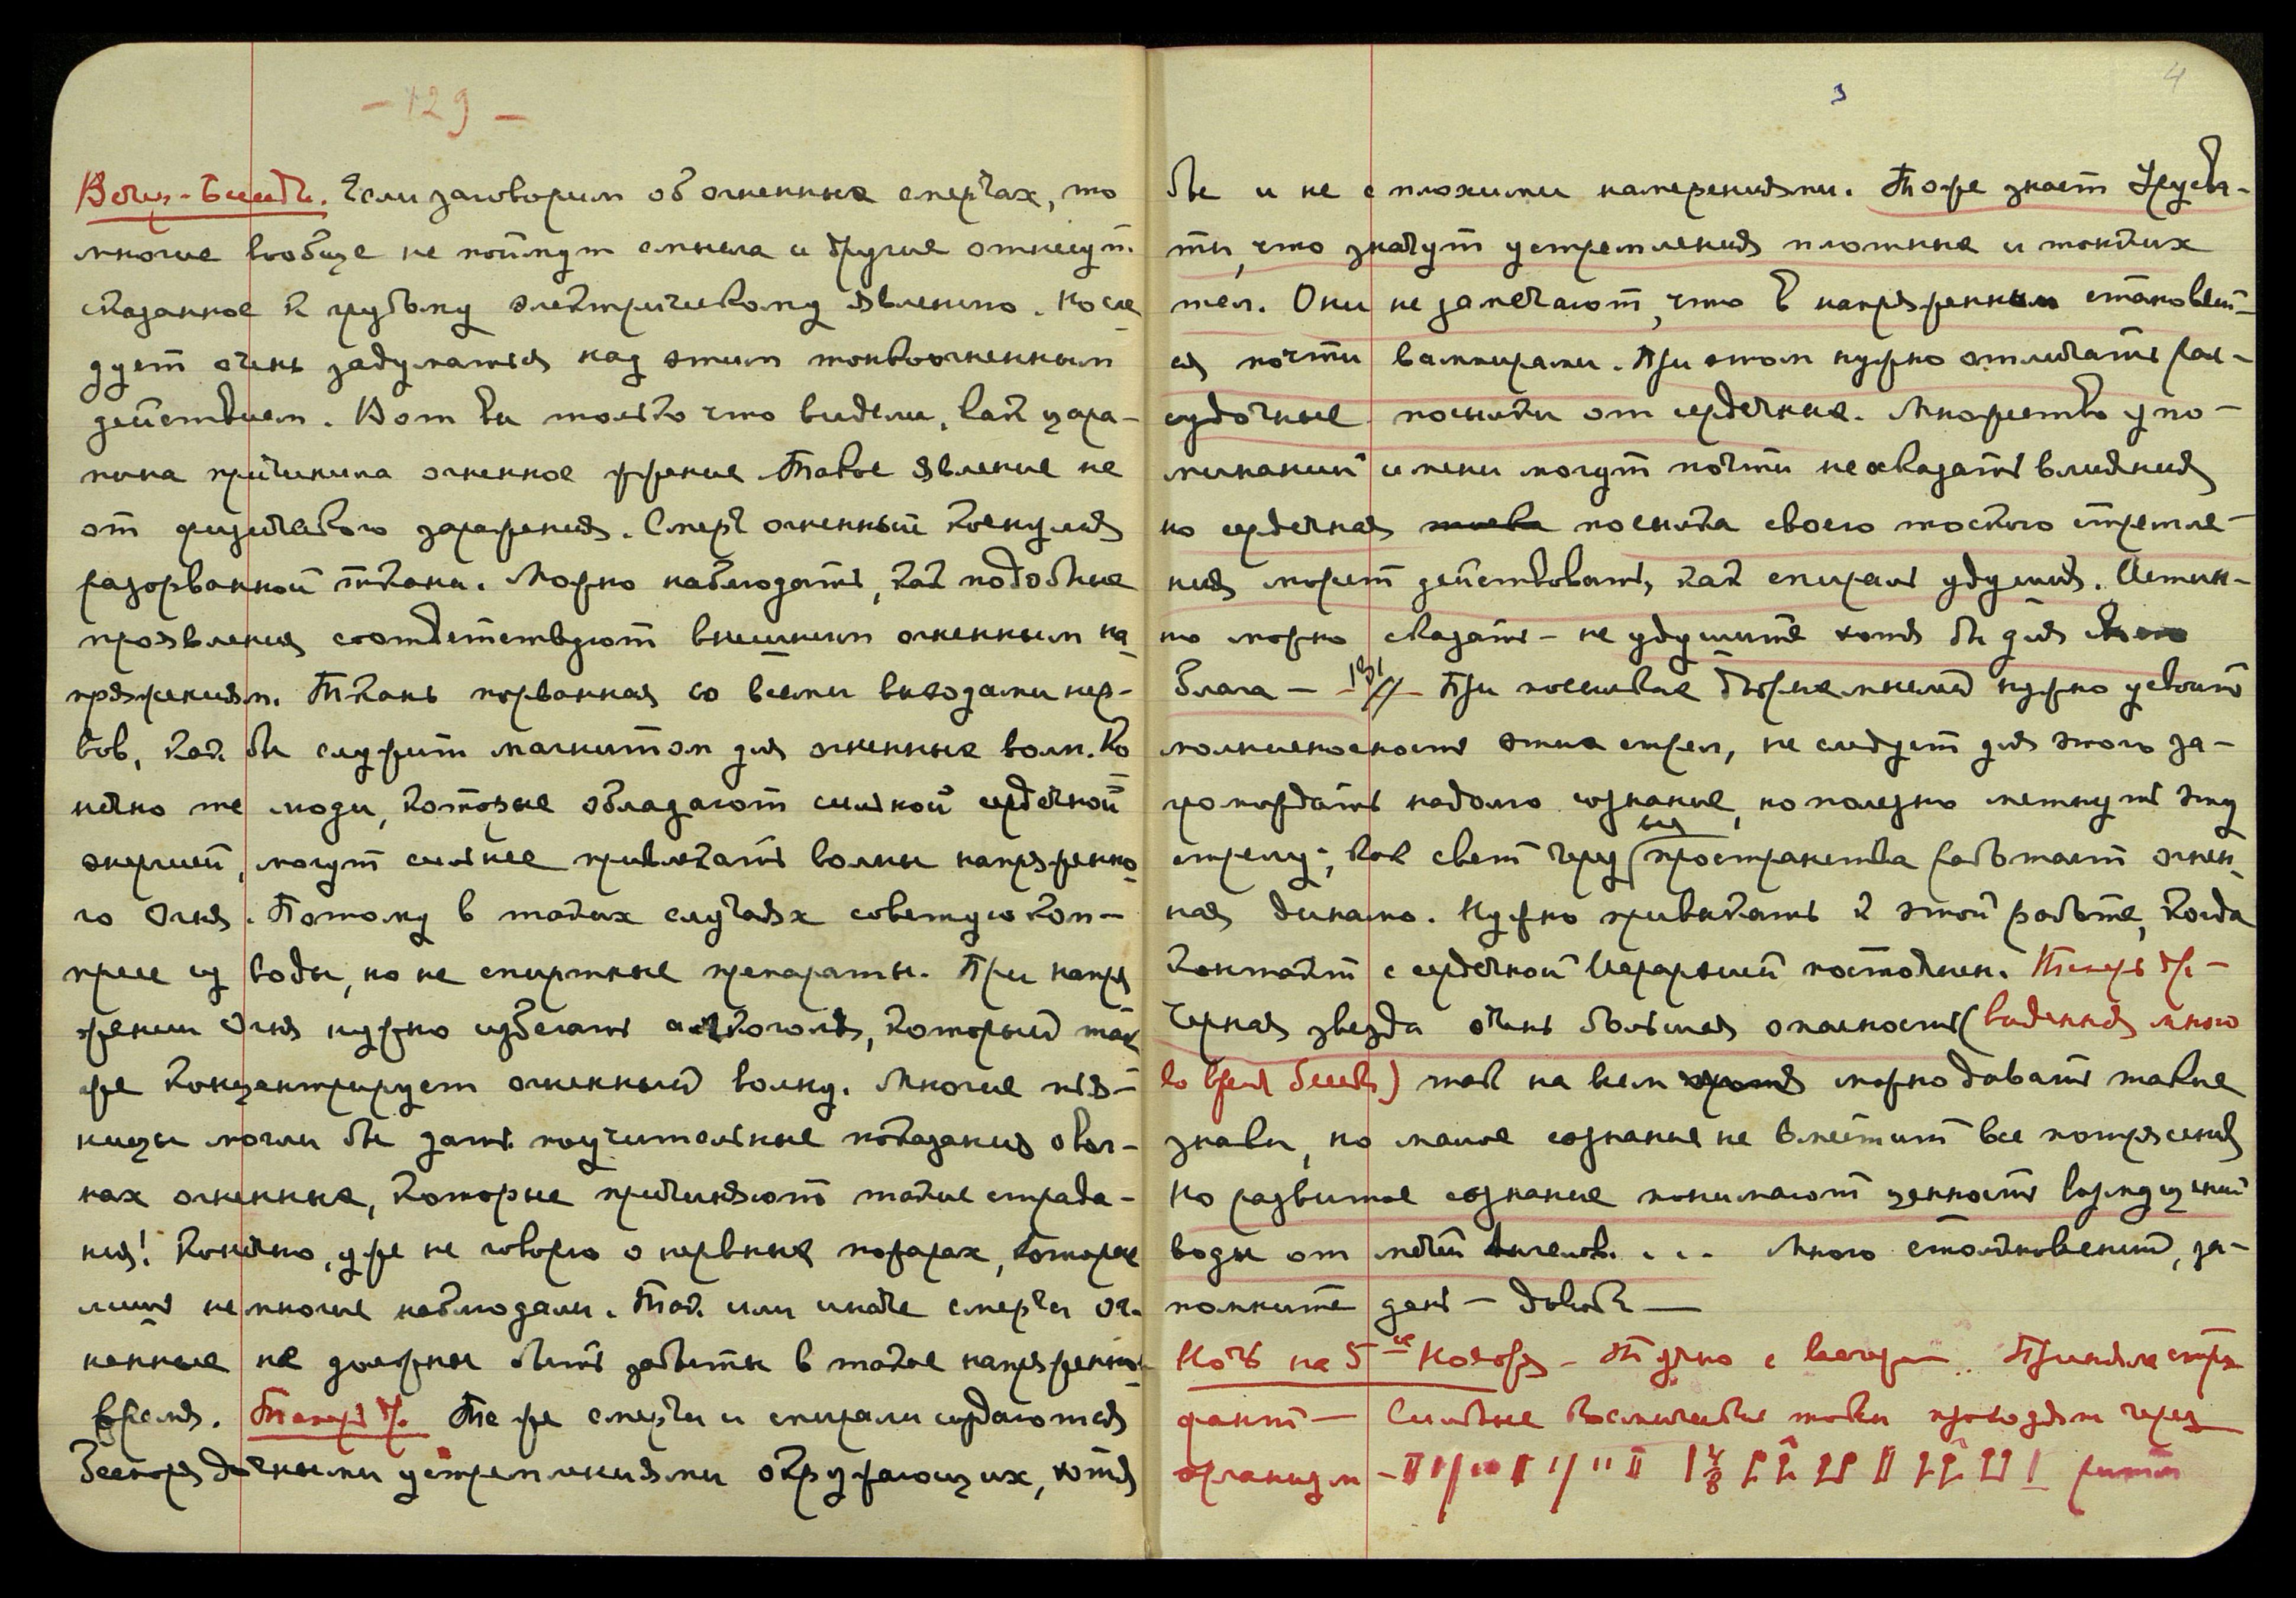 - 129 -
Если заговорим об огненных смерчах, то
многие вообще не поймут смысла и другие отнесут
сказанное к грубому электрическому явлению. но сле
дует очень задуматься над этим тонкоогненным
действием. Вот вы только что видели, как цара-
пина причинила огненное жжение Такое явление не
от физического заражения. Смерч огненный коснулся
разорванной ткани. Можно наблюдать, как подобные
проявления соответствуют внешним огненным на
пряжениям. Ткань порванная со всеми выходами нер-
вов, как бы служит магнитом для огненных волн. Ко
нечно те люди, которые обладают сильной сердечной
энергией, могут сильнее привлекать волны напряженно
го Огня. Потому в таких случаях советую ком-
пресс из воды, но не спиртные препараты. При напря
жении Огня нужно избегать алкоголя, который так
же концентрирует огненный волну. Многие пья-
ницы могли бы дать поучительные показания о вол-
нах огненных, которые причиняют такие страда-
ния! Конечно, уже не говорю о нервных пожарах, которые
лишь немногие наблюдали. Так или иначе смерчи ог-
ненные не должны быть забыты в такое напряженное
время. Те же смерчи и спирали создаются
беспорядочными устремлениями окружающих, хотя
3
4
бы и не с плохими намерениями. Тоже знает Урусва-
ти, что значут устремления плотных и тонких
тел. Они не замечают, что в напряженным становят-
ся почти вампирами. При этом нужно отличать рас-
судочные посылки от сердечных. Множество упо-
минаний имени могут почти не оказать влияния
но сердечная посылка своего тоского стремле-
ния может действовать, как спираль удушия. Истин-
но можно сказать - не удушите хотя бы для
Блага - 131 - При посылке мыслей нужно усвоить
молниеносность этих стрел, не следует для этого за-
громождать надолго сознание, но полезно метнуть эту
стрелу; как свет через все пространства работает огнен
ная динамо. Нужно привыкать к этой работе, когда
контакт с сердечной Иерархией постоянен.
Черная звезда очень большая опасность (виденная много
во время беседы) так на всем можно давать такие
знаки, но малое сознание не вместит все потрясения
Но развитое сознание понимают ценность
воды от . . . Много столкновений, за-
помните день - довольно -
Ночь на 5ое Ноября -
Сильные токи проходят через
организм - ритм